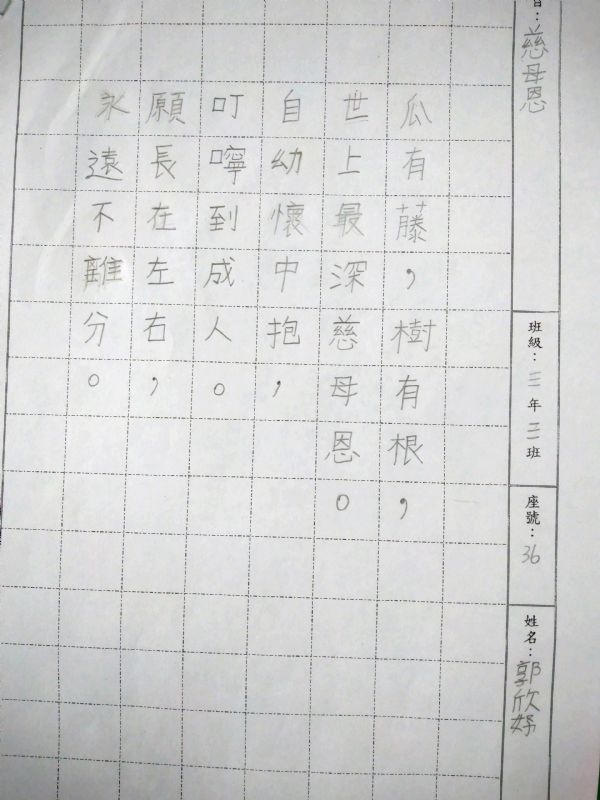 目：慈母恩
班級：三年三班
座號：36
姓名：郭欣妤
瓜有藤，樹有根，
世上最深慈母恩。
自幼懷中抱，
叮嚀到成人。
願長在左右，
永遠不離分。